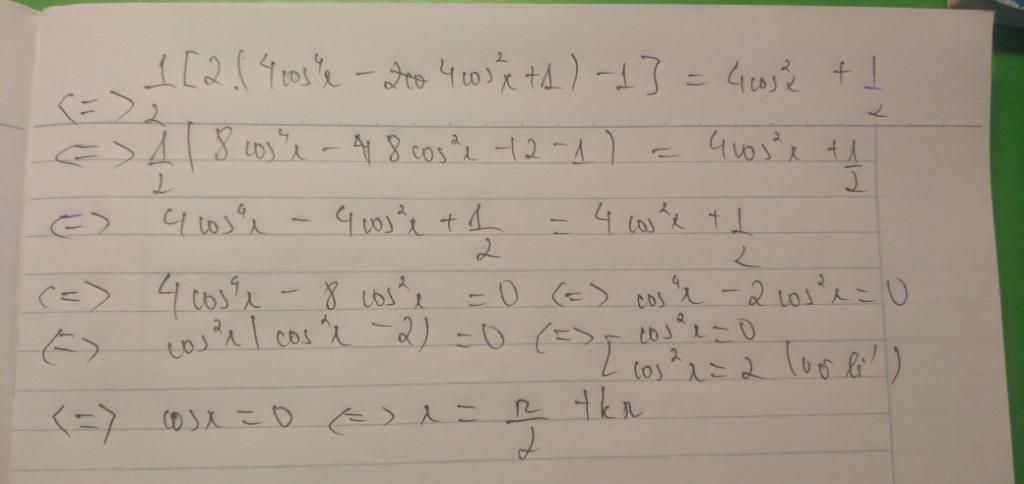 <=> 1/2 [2.(4cos⁴x - 4cos²x + 1) - 1] = 4cos²x + 1/2
<=> 1/2 (8cos⁴x - 8cos²x + 2 - 1) = 4cos²x + 1/2
<=> 4cos⁴x - 4cos²x + 1/2 = 4cos²x + 1/2
<=> 4cos⁴x - 8cos²x = 0 <=> cos⁴x - 2cos²x = 0
<=> cos²x (cos²x - 2) = 0 <=> [ cos²x = 0
cos²x = 2 (vô lí)
<=> cosx = 0 <=> x = π/2 + kπ